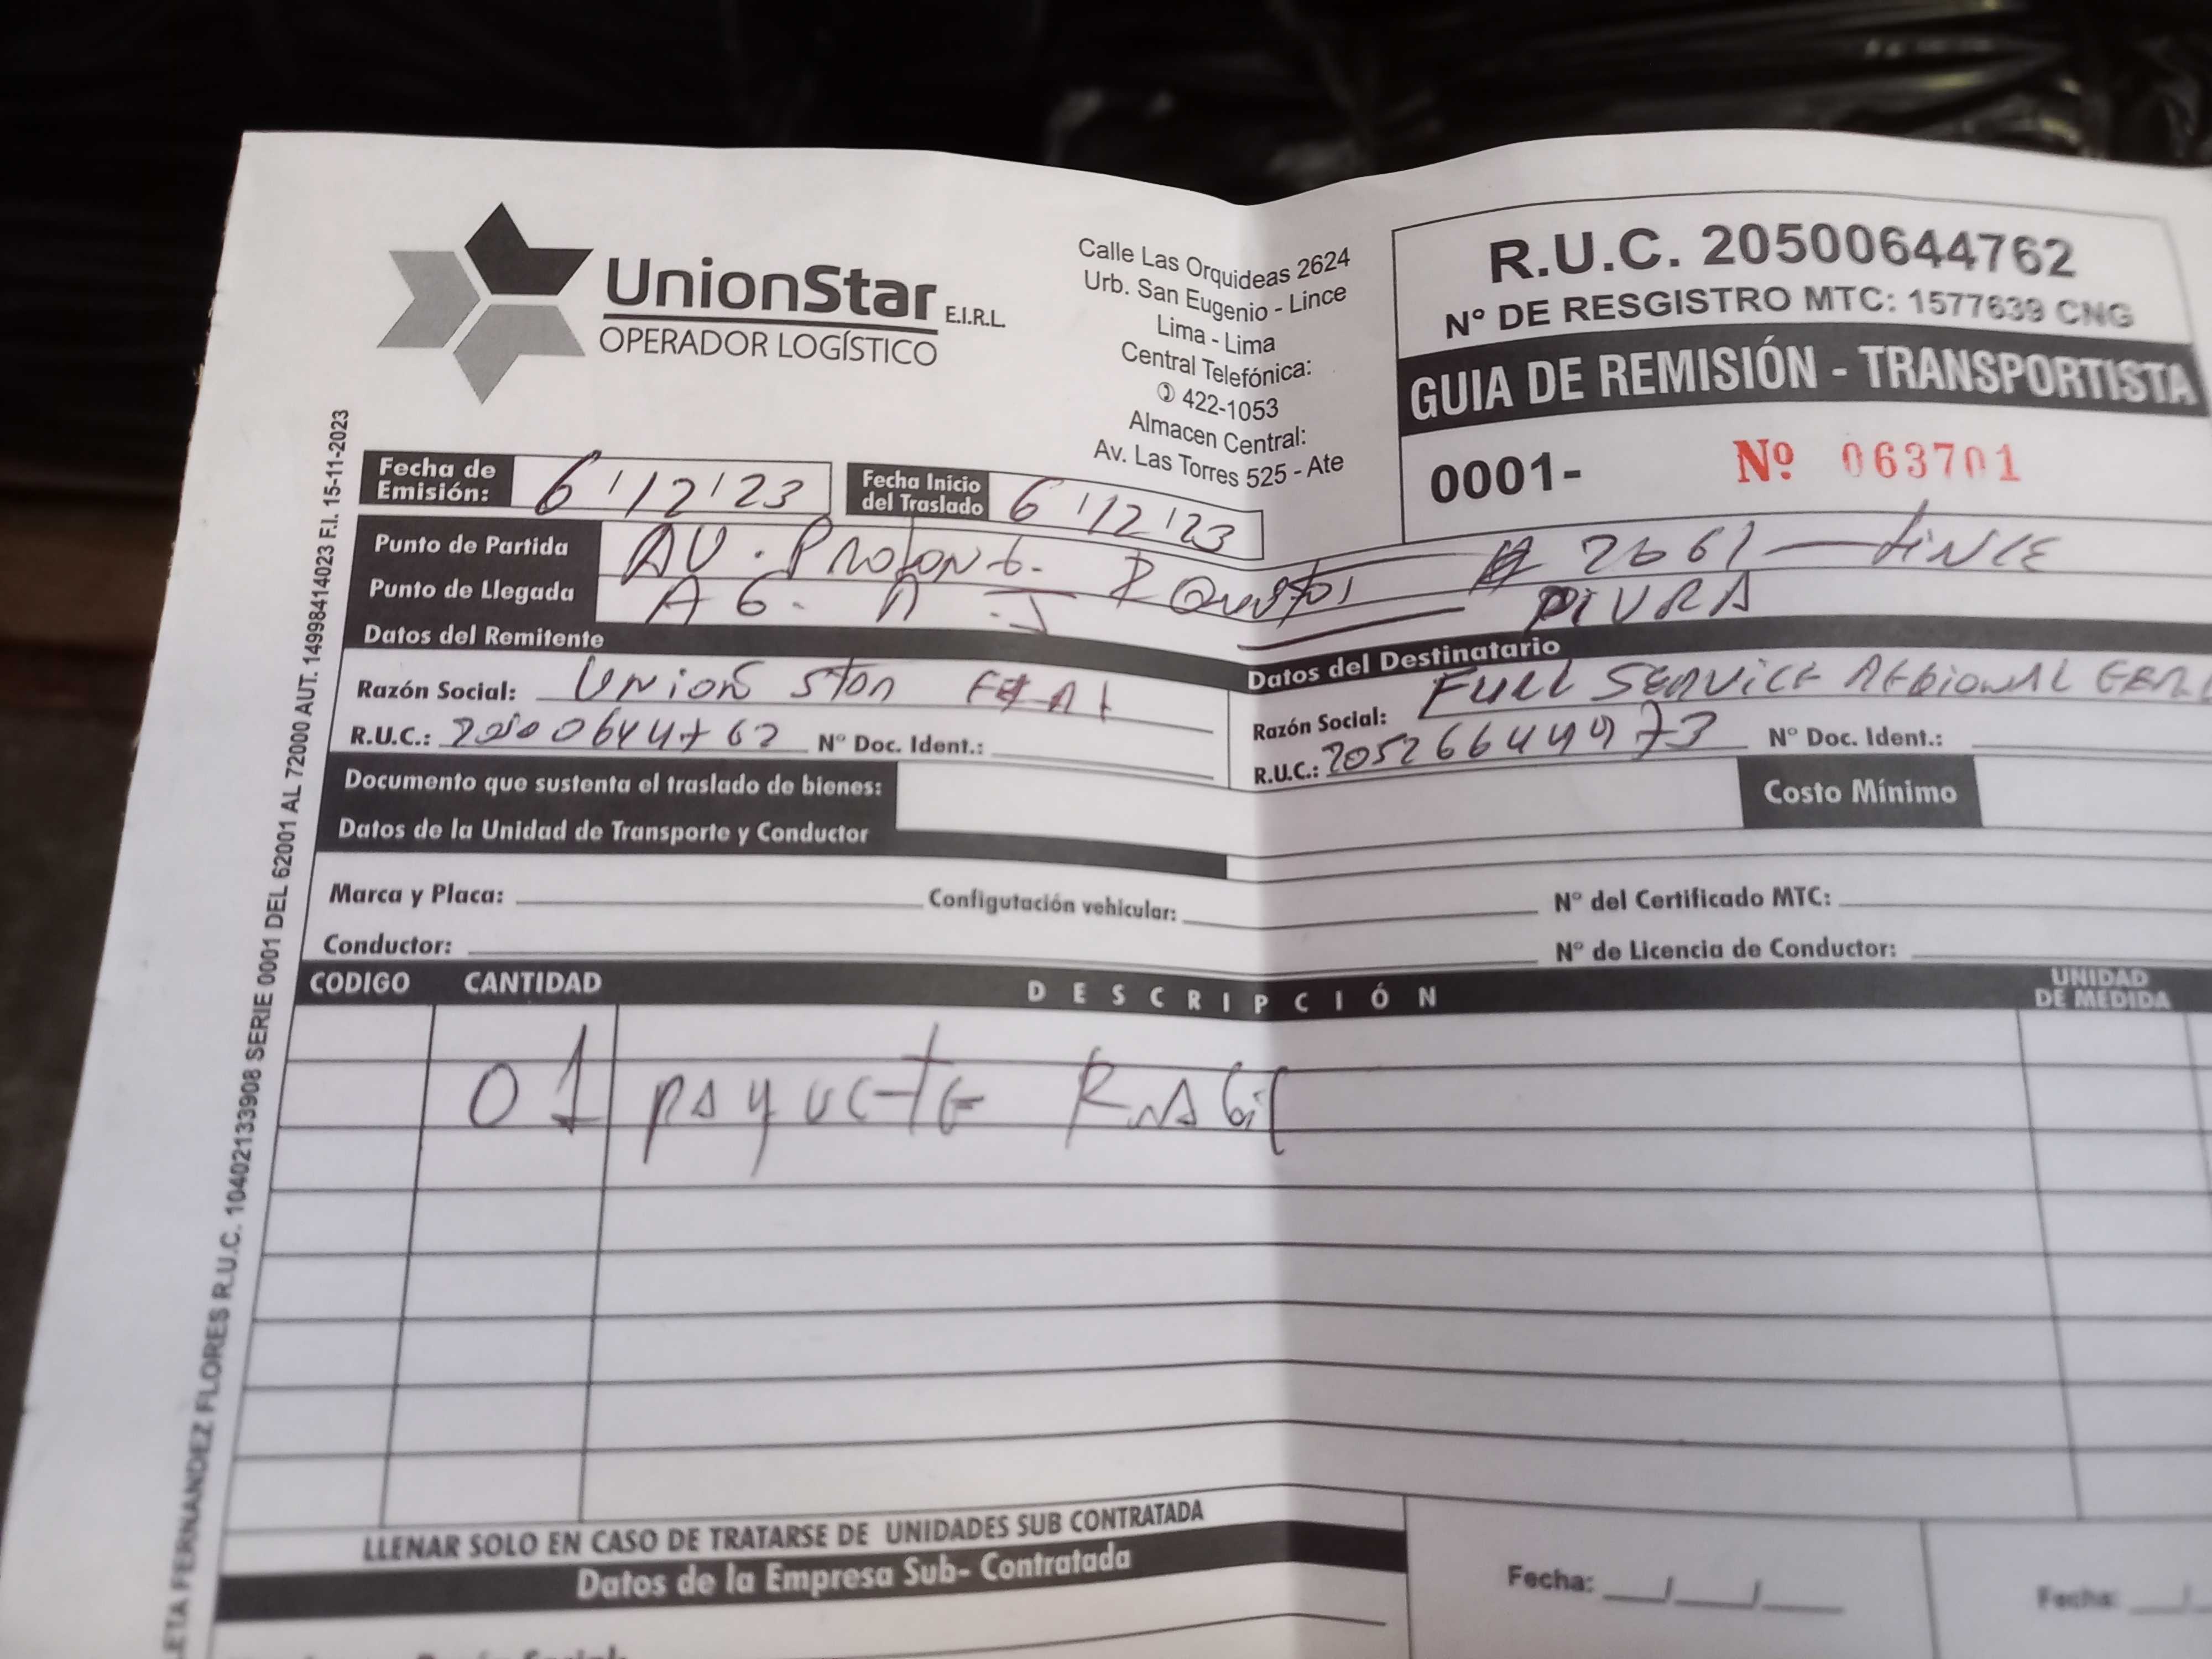 UnionStar E.I.R.L.
OPERADOR LOGÍSTICO
Calle Las Orquideas 2624
Urb. San Eugenio - Lince
Lima - Lima
Central Telefónica:
422-1053
Almacen Central:
Av. Las Torres 525 - Ate
R.U.C. 20500644762
N° DE RESGISTRO MTC: 1577639 CNG
GUIA DE REMISIÓN - TRANSPORTISTA
0001- Nº 063701
Fecha de Emisión: 6/12/23
Fecha Inicio del Traslado 6/12/23
Punto de Partida AV. Prolong. 2661 - Lince
Punto de Llegada AG. PIURA
Datos del Remitente
Razón Social: Union Star
R.U.C.: 20500644762 N° Doc. Ident.:
Datos del Destinatario
Razón Social: FULL SERVICE REGIONAL
R.U.C.: N° Doc. Ident.:
Documento que sustenta el traslado de bienes:
Costo Mínimo
Datos de la Unidad de Transporte y Conductor
Marca y Placa: Configutación vehicular: N° del Certificado MTC:
Conductor: N° de Licencia de Conductor:
CODIGO CANTIDAD DESCRIPCIÓN UNIDAD DE MEDIDA
01 paquete
LLENAR SOLO EN CASO DE TRATARSE DE UNIDADES SUB CONTRATADA
Datos de la Empresa Sub- Contratada
Fecha: __/__/__
Fecha:
FERNANDEZ FLORES R.U.C. 10402133908 SERIE 0001 DEL 62001 AL 72000 AUT. 14998414023 F.I. 15-11-2023